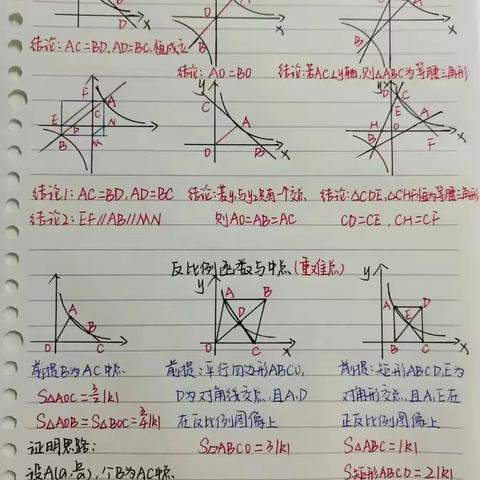 结论：AC=BD，AD=BC，恒成立
结论：AO=BO
结论：若AC⊥y轴，则△ABC为等腰三角形
结论1：AC=BD，AD=BC
结论2：EF//AB//MN
结论：若y₁与y₂只有一个交点
则AO=AB=AC
结论：△CDE，△CHF恒为等腰三角形
CD=CE，CH=CF
反比例函数与中点（重难点）
前提B为AC中点
S△AOC=3/2|k|
S△AOB=S△BOC=3/4|k|
证明思路：
设A(a,k/a)，个B为AC中点
前提：平行四边形ABCO，
D为对角线交点，且A，D
在反比例图像上
S▱ABCO=3|k|
前提：矩形ABCD，E为
对角形交点，且A，E在
正反比例图像上
S△ABC=|k|
S矩形ABCD=2|k|